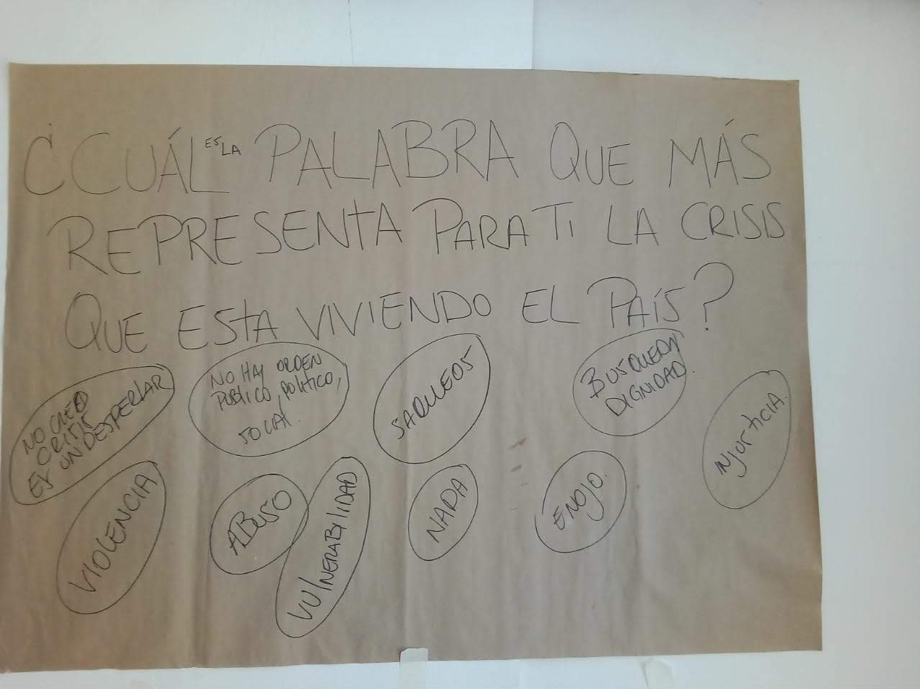 ¿CUÁL ES LA PALABRA QUE MÁS
REPRESENTA PARA TI LA CRISIS
QUE ESTA VIVIENDO EL PAÍS?
NO CREO
CRISIS
ES UN DESPERTAR
NO HAY ORDEN
PUBLICO, POLITICO,
SOCIAL.
SAQUEOS
BUSQUEDA
DIGNIDAD.
INJUSTICIA.
VIOLENCIA
ABUSO
VULNERABILIDAD
NADA
ENOJO.